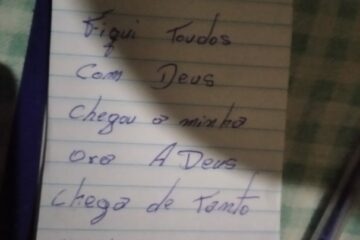 Fiqui Toudos
Com Deus
Chegou a minha
ora A Deus
Chega de Tanto